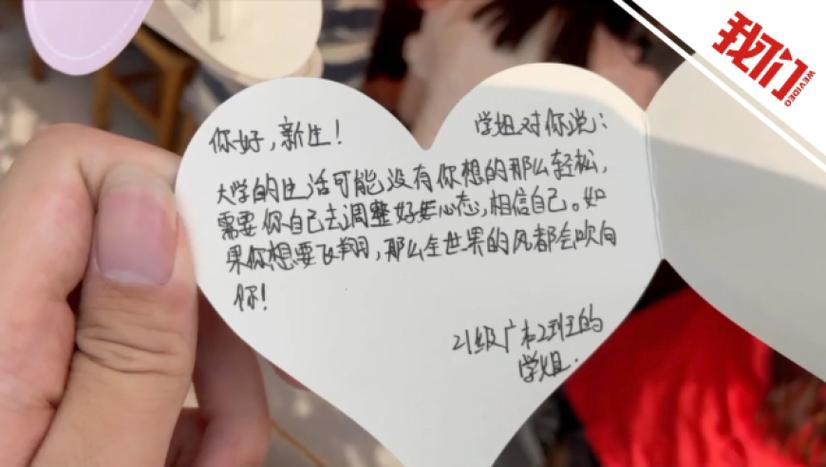 我们
WEVIDEO
你好,新生!
学姐对你说:
大学的生活可能没有你想的那么轻松,
需要你自己去调整好心态,相信自己。如
果你想要飞翔,那么全世界的风都会吹向
你!
21级广本2班的
学姐.